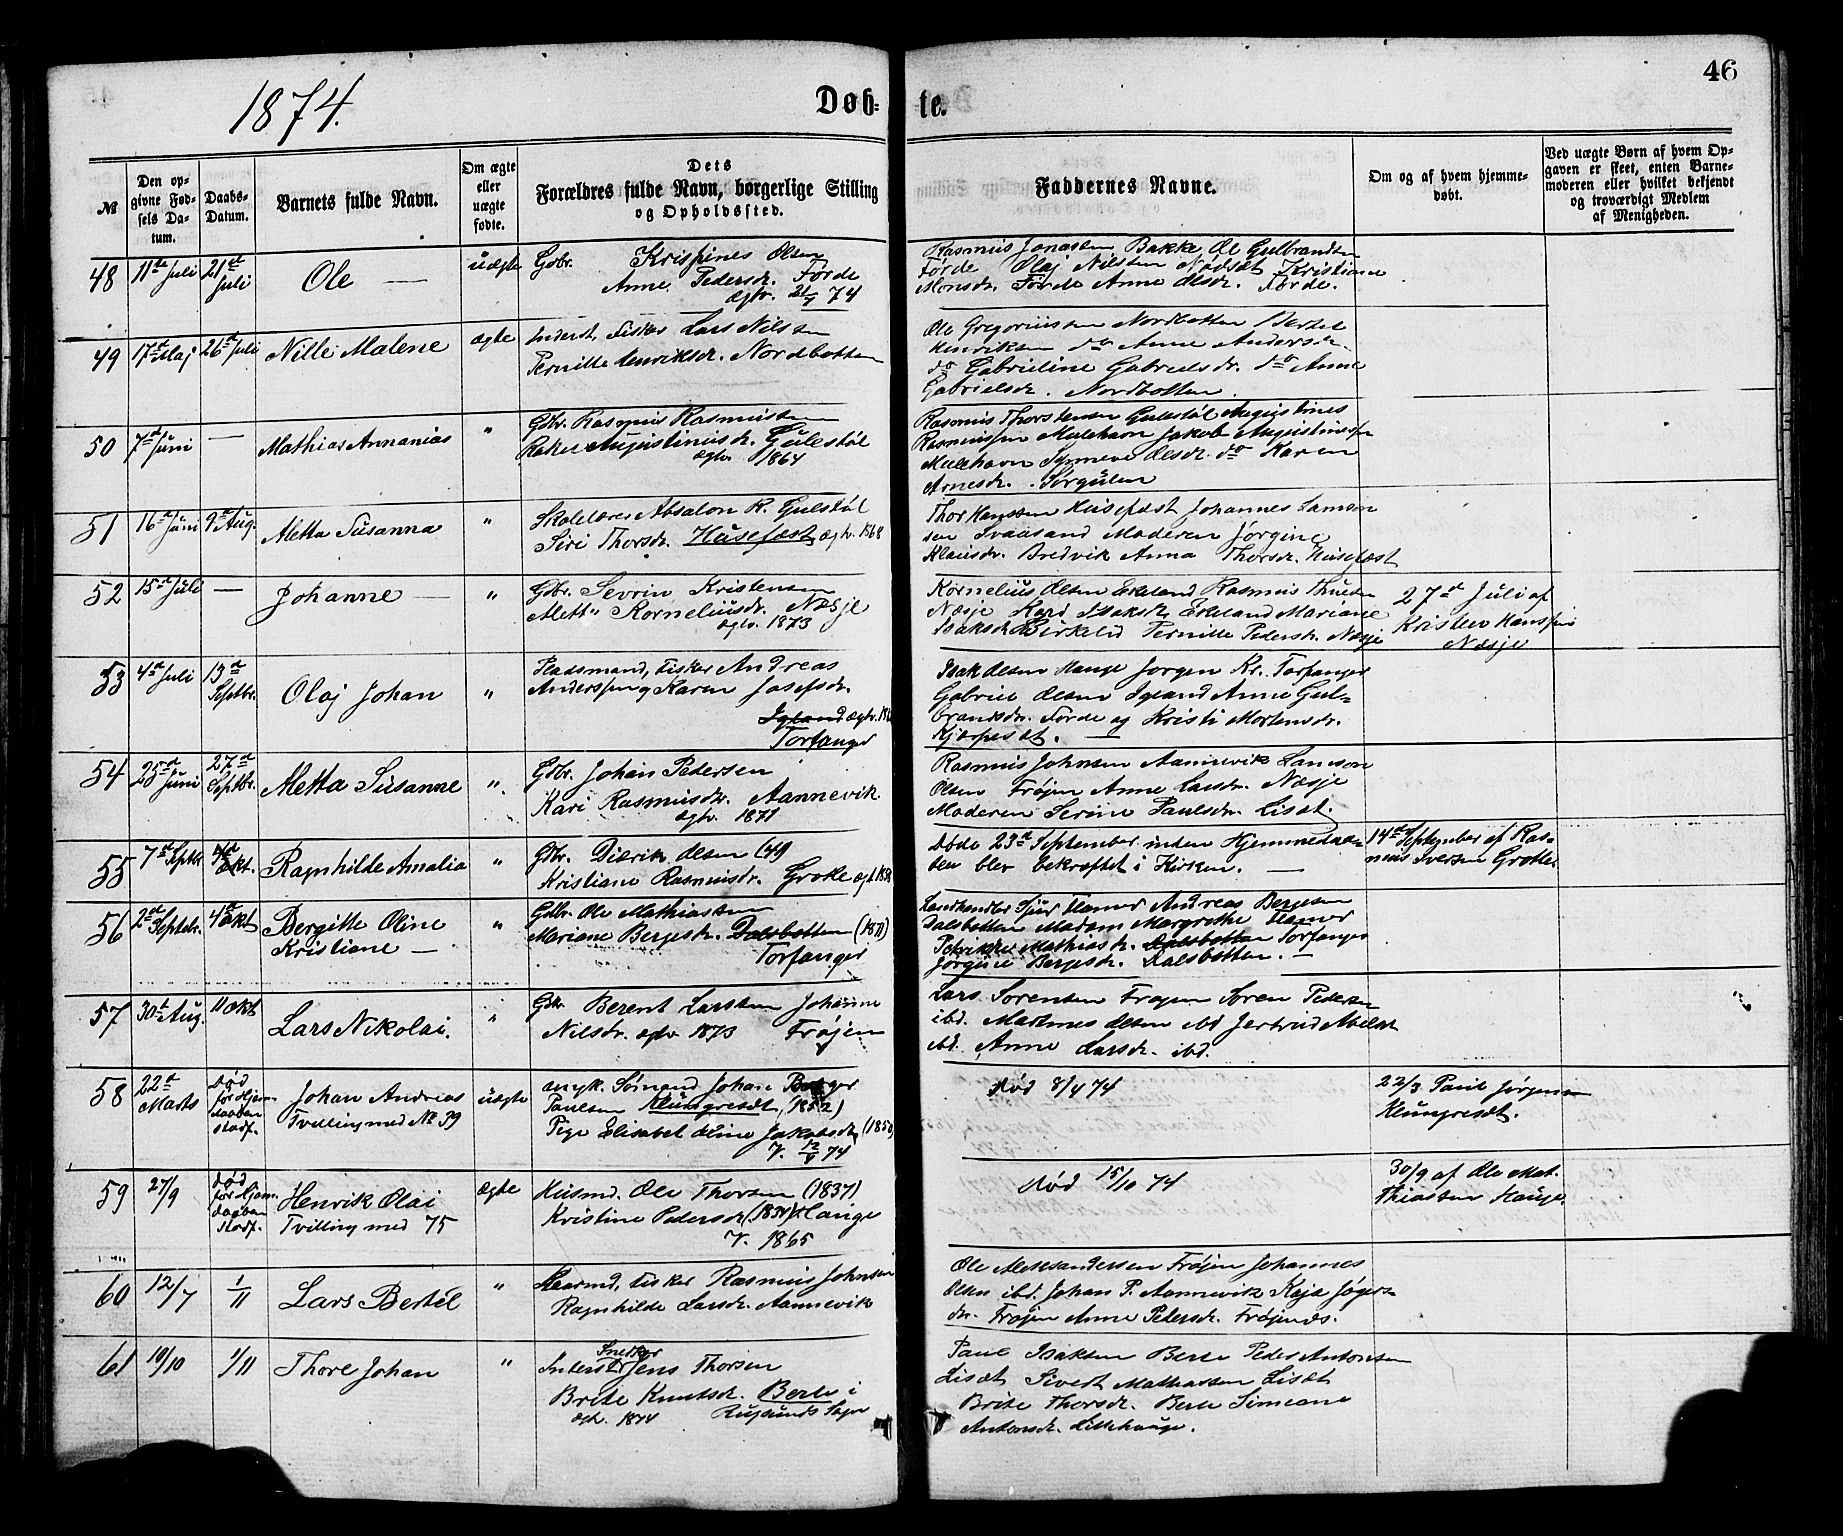 46
1874.
Døb- te.
№
Den op-
givne Fød-
sels Da-
tum.
Daabs-
Datum.
Barnets fulde Navn.
Om ægte
eller
uægte
fødte.
Dets
Forældres fulde Navn, borgerlige Stilling
og Opholdssted.
Faddernes Navne.
Om og af hvem hjemme-
døbt.
Ved uægte Børn af hvem Op-
gaven er skeet, enten Barne-
moderen eller hvilket bekjendt
og troværdigt Medlem
af Menigheden.
48 11te Juli 21de Juli Ole — uægte
Gbr. Krispines Olsen
Anne Pedersdr. Førde
ægtv. 74
Rasmus Jonassen Bakke Ole Gulbrandsen
Førde Olaj Nilsen Nødsæt Kristiane
Monsdr. Førde Anne Olsdr. Førde.
49 17de Maj 26de Juli Nille Malene ægte
Inderst, Fisker Lars Nilsen
Pernille Henriksdr. Nordbotten
Ole Gregoriussen Nordbotten Bertel
Henriksen do Anne Andersdr.
do Gabrieline Gabrielsdr. do Anne
Gabrielsdr. Nordbotten.
50 7de Juni — Mathias Annanias "
Gbr. Rasmus Rasmussen
Augustinusdr. Gulestøl
ægtv. 1864
Rasmus Thorstensen Gulestøl Augustines
Rasmussen Mulehavn Jakob Augustinussen
Mulehavn Synneve Olsdr. do Karen
Arnesdr. Sørgulen
51 16de Juni 9de Aug. Metta Susanna "
Skolelærer Absalon R. Gulestøl
Siri Thorsdr. Husefæst ægtv. 1868
Thor Hanssen Husefæst Johannes Samson
sen Svaasand Moderen Jørgine
Klausdr. Bredvik Anna Thorsdr. Husefæst
52 15de Juli — Johanne — "
Gbr. Sevrin Kristensen
Mette Korneliusdr. Næsje
ægtv. 1873
Kornelius Olsen Ekeland Rasmus
Næsje Kari Isaksdr. Ekeland Mariane
Isaksdr. Birkelid Pernille Pedersdr. Næsje
27de Juli af
Kristen Hanssen
Næsje
53 4de Juli 13de Septbr. Olaj Johan "
Pladsmand, Fisker Andreas
Anderssen og Karen Josefsdr.
Igland ægtv.
Torfanger
Isak Olsen Hauge Jørgen Kr. Torfanger
Gabriel Olsen Igland Anne Gul-
brandsdr. Førde og Kristi Mortensdr.
Kjærpesæt. —
54 25de Juni 27de Septbr. Metta Susanne "
Gbr. Johan Pedersen
Kari Rasmusdr. Aannevik.
ægtv. 1871
Rasmus Johnsen Aannevik Samson
Olsen Frøjen Anne Larsdr. Næsje
Moderen Serine Paulsdr. Lisæt.
55 7de Septbr. 4de Okt. Ragnhilde Amalia "
Gbr. Diderik Olsen
Kristiane Rasmusdr. Grotle
Døde 23de September inden Hjemmedaa-
ben blev bekræftet i Kirken. —
14de September af Ras-
mus Iversen Grotle
56 2de Septbr. 4de Okt Bergitte Oline
Kristiane — "
Gbr. Ole Mathiassen
Mariane Bergesdr. Dalsbotten (1871)
Torfanger
Landhandler Sjur Hamer Andreas Bergesen
Dalsbotten Madam Margrethe Hamer
Petrikke Mathiasdr. Dalsbotten Torfanger
Jørgine Bergesdr. Dalsbotten. —
57 30te Aug. 11 Okt Lars Nikolai. "
Gbr. Berent Larssen Johanne
Nilsdr. ægtv 1873 Frøjen
Lars Sørensen Frøjen Søren Pedersen
ibd. Martines Olsen ibd Jertrud
ibd. Anne Larsdr. ibd.
58 22de Marts Død
før Hjem.
daaben
stadf.
Johan Andreas
Tvilling med No 39 uægte
ungk. Sømand Johan Berger
Paulsen Klungresæt, (1852)
Pige Elisabet Oline Jakobsdr. (1850)
V. 74
Død 8/4 74
22/3 Paul Jørgensen
Klungresæt.
59 27/9 Død
før Hjem.
daaben
stadf.
Henrik Olai
Tvilling med 75 Ægte
Husmd. Ole Thorsen (1837)
Kristine Pedersdr. Hauge
V. 1865
Død 15/10 74
30/9 af Ole Mat.
Thiassen Hauge.
60 12/7 1/11 Lars Bertel "
Fisker Rasmus Johnsen
Ragnhilde Larsdr. Aannevik
Ole Aleksandersen Frøjen Johannes
Olsen ibd. Johan P. Aannevik Kaja
dr. Frøjen Anne Pedersdr. Frøjenæs.
61 10/10 1/11 Thore Johan "
Snedker
Inderst Jens Thorsen
Brite Knutsdr. Berle i
ægtv. 1874 Rugsunds Sogn
Paul Isaksen Berle Peder Antonsen
Lisæt Sivert Mathiassen Lisæt
Brite Thorsdr. Berle Simeane
Antonsdr. Lillehauge.